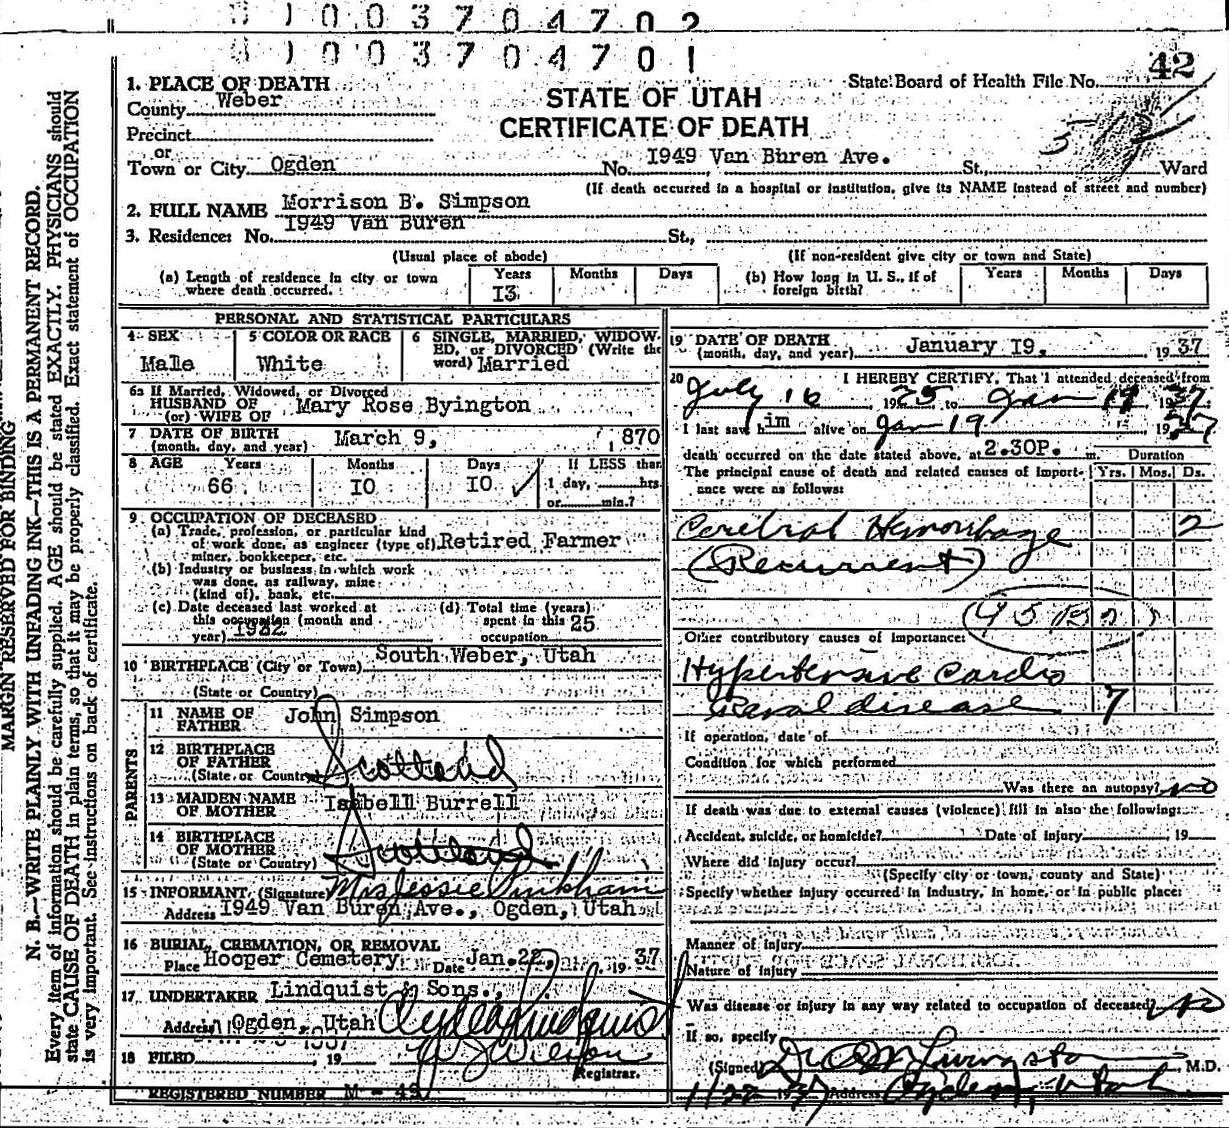 0 0 3 7 0 4 7 0 2
0 0 3 7 0 4 7 0 1
MARGIN RESERVED FOR BINDING
N. B.—WRITE PLAINLY WITH UNFADING INK—THIS IS A PERMANENT RECORD.
Every item of information should be carefully supplied. AGE should be stated EXACTLY. PHYSICIANS should
state CAUSE OF DEATH in plain terms, so that it may be properly classified. Exact statement of OCCUPATION
is very important. See instructions on back of certificate.
State Board of Health File No. 42
STATE OF UTAH
CERTIFICATE OF DEATH
1. PLACE OF DEATH
County Weber
Precinct
or
Town or City Ogden No. 1949 Van Buren Ave. St., Ward
(If death occurred in a hospital or institution, give its NAME instead of street and number)
2. FULL NAME Morrison B. Simpson
3. Residence: No. 1949 Van Buren St.,
(Usual place of abode) (If non-resident give city or town and State)
(a) Length of residence in city or town where death occurred. Years 13 Months Days
(b) How long in U. S., if of foreign birth? Years Months Days
PERSONAL AND STATISTICAL PARTICULARS
4 SEX Male
5 COLOR OR RACE White
6 SINGLE, MARRIED, WIDOWED, or DIVORCED (Write the word) Married
6a If Married, Widowed, or Divorced
HUSBAND OF
(or) WIFE OF Mary Rose Byington
7 DATE OF BIRTH
(month, day, and year) March 9, 1870
8 AGE Years 66 Months 10 Days 10 If LESS than 1 day, hrs. or min.?
9 OCCUPATION OF DECEASED
(a) Trade, profession, or particular kind of work done, as engineer (type of) miner, bookkeeper, etc. Retired Farmer
(b) Industry or business in which work was done, as railway, mine (kind of), bank, etc.
(c) Date deceased last worked at this occupation (month and year)
(d) Total time (years) spent in this occupation 25
10 BIRTHPLACE (City or Town) South Weber, Utah
(State or Country)
PARENTS
11 NAME OF FATHER John Simpson
12 BIRTHPLACE OF FATHER
(State or Country) Scotland
13 MAIDEN NAME OF MOTHER Isabell Burrell
14 BIRTHPLACE OF MOTHER
(State or Country) Scotland
15 INFORMANT (Signature) Mrs Jessie Pinkham
Address 1949 Van Buren Ave., Ogden, Utah
16 BURIAL, CREMATION, OR REMOVAL
Place Hooper Cemetery Date Jan. 22, 1937
17 UNDERTAKER Lindquist & Sons.,
Address Ogden, Utah
18 FILED 19
Registrar.
REGISTERED NUMBER M - 43
19 DATE OF DEATH
(month, day, and year) January 19, 1937
20 I HEREBY CERTIFY, That I attended deceased from
July 16 1925 to Jan 19 1937
I last saw him alive on Jan 19 1937
death occurred on the date stated above, at 2.30P. m. Duration
The principal cause of death and related causes of importance were as follows: Yrs. Mos. Ds.
Cerebral Hemorrhage 2
(Recurrent)
Other contributory causes of importance:
Hypertensive Cardio
Renal disease 7
If operation, date of
Condition for which performed
Was there an autopsy? no
If death was due to external causes (violence) fill in also the following:
Accident, suicide, or homicide? Date of injury 19
Where did injury occur?
(Specify city or town, county and State)
Specify whether injury occurred in industry, in home, or in public place:
Manner of Injury
Nature of Injury
Was disease or injury in any way related to occupation of deceased? no
If so, specify
(Signed) M.D.
1/22 1937 Address Ogden, Utah